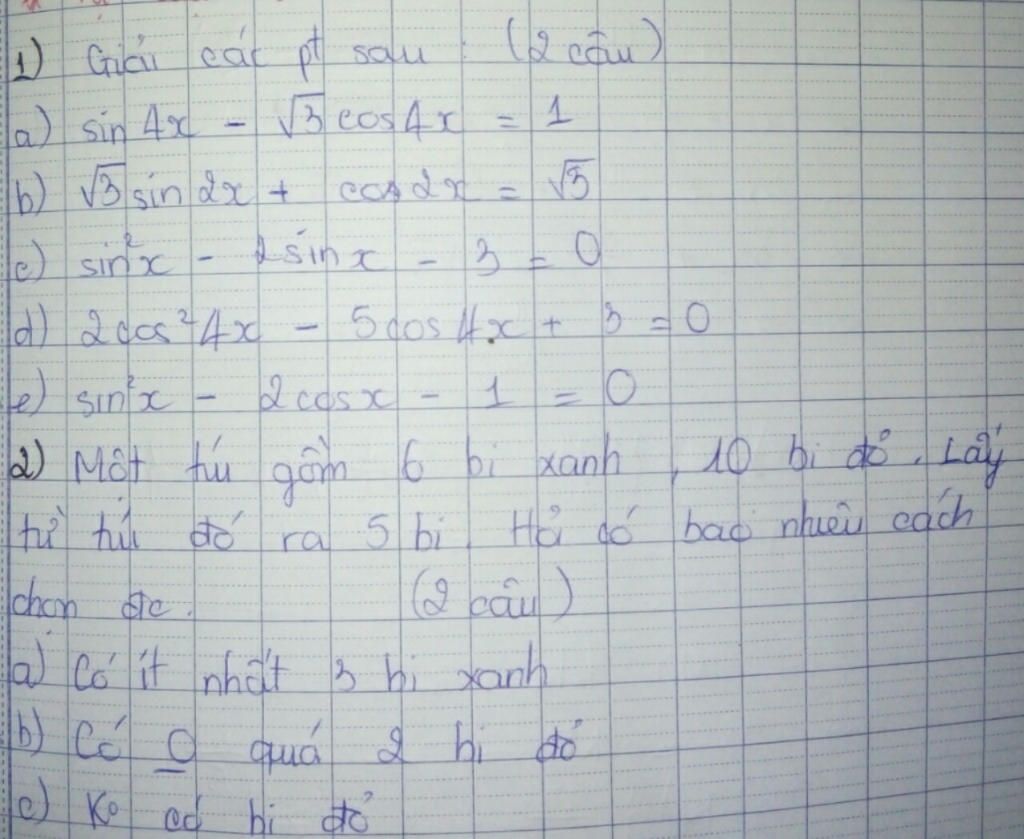 1) Giải các pt sau : (2 câu)
a) sin 4x - √3 cos 4x = 1
b) √3 sin 2x + cos 2x = √3
c) sin²x - 2 sin x - 3 = 0
d) 2cos²4x - 5cos 4x + 3 = 0
e) sin²x - 2cosx - 1 = 0
2) Một túi gồm 6 bi xanh, 10 bi đỏ. Lấy
từ túi đó ra 5 bi. Hỏi có bao nhiêu cách
chọn đc. (2 câu)
a) Có ít nhất 3 bi xanh
b) Có O quá 2 bi đỏ
c) Ko có bi đỏ